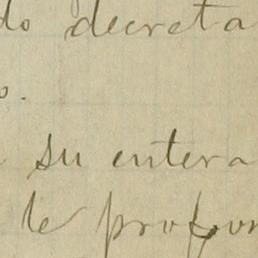 do decreta
o.
su entera
le profun